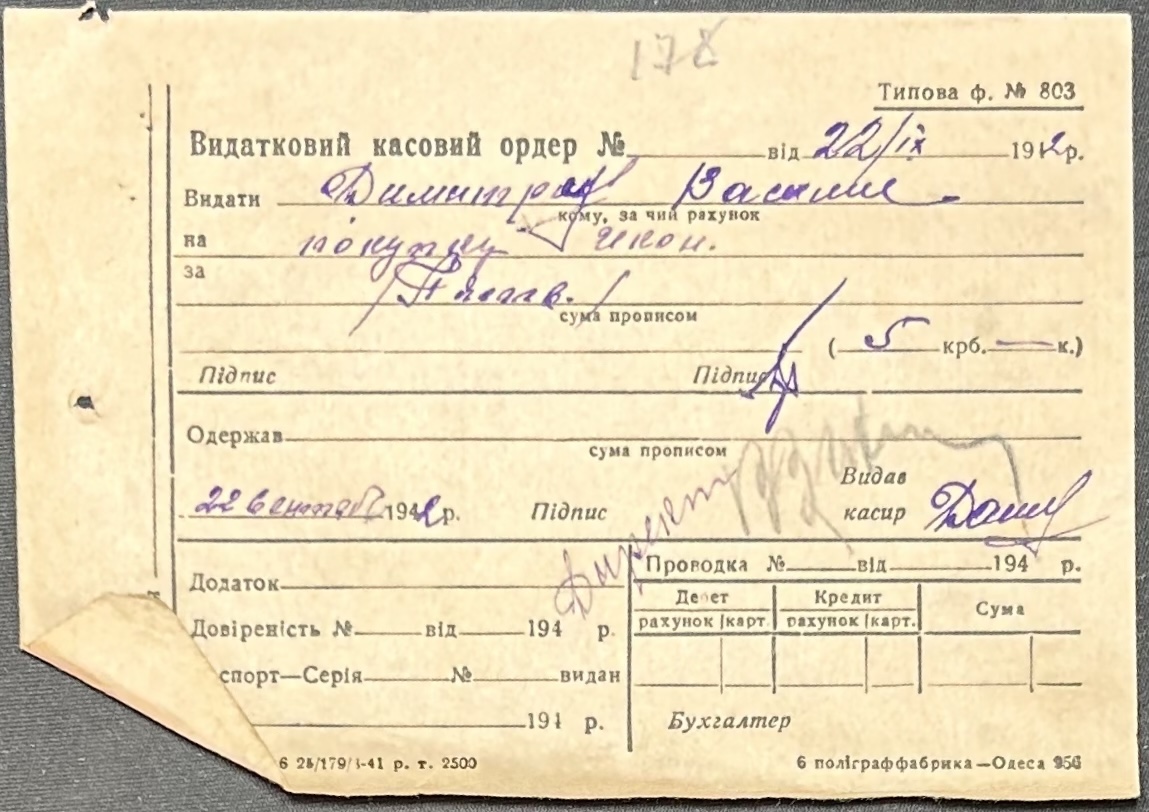 178
Типова ф. № 803
Видатковий касовий ордер № від 22/IX 1942 р.
Видати Димитров Василие
кому, за чий рахунок
на покупку икон.
за
сума прописом
( 5 крб. — к.)
Підпис Підпис
Одержав
сума прописом
22 Сентяб 1942 р. Підпис
Видав
касир
Директор
Додаток
Довіреність № від 194 р.
спорт—Серія № видан
194 р.
Проводка № від 194 р.
Дебет Кредит Сума
рахунок карт. рахунок карт.
Бухгалтер
р. т. 2500
6 поліграффабрика—Одеса 956